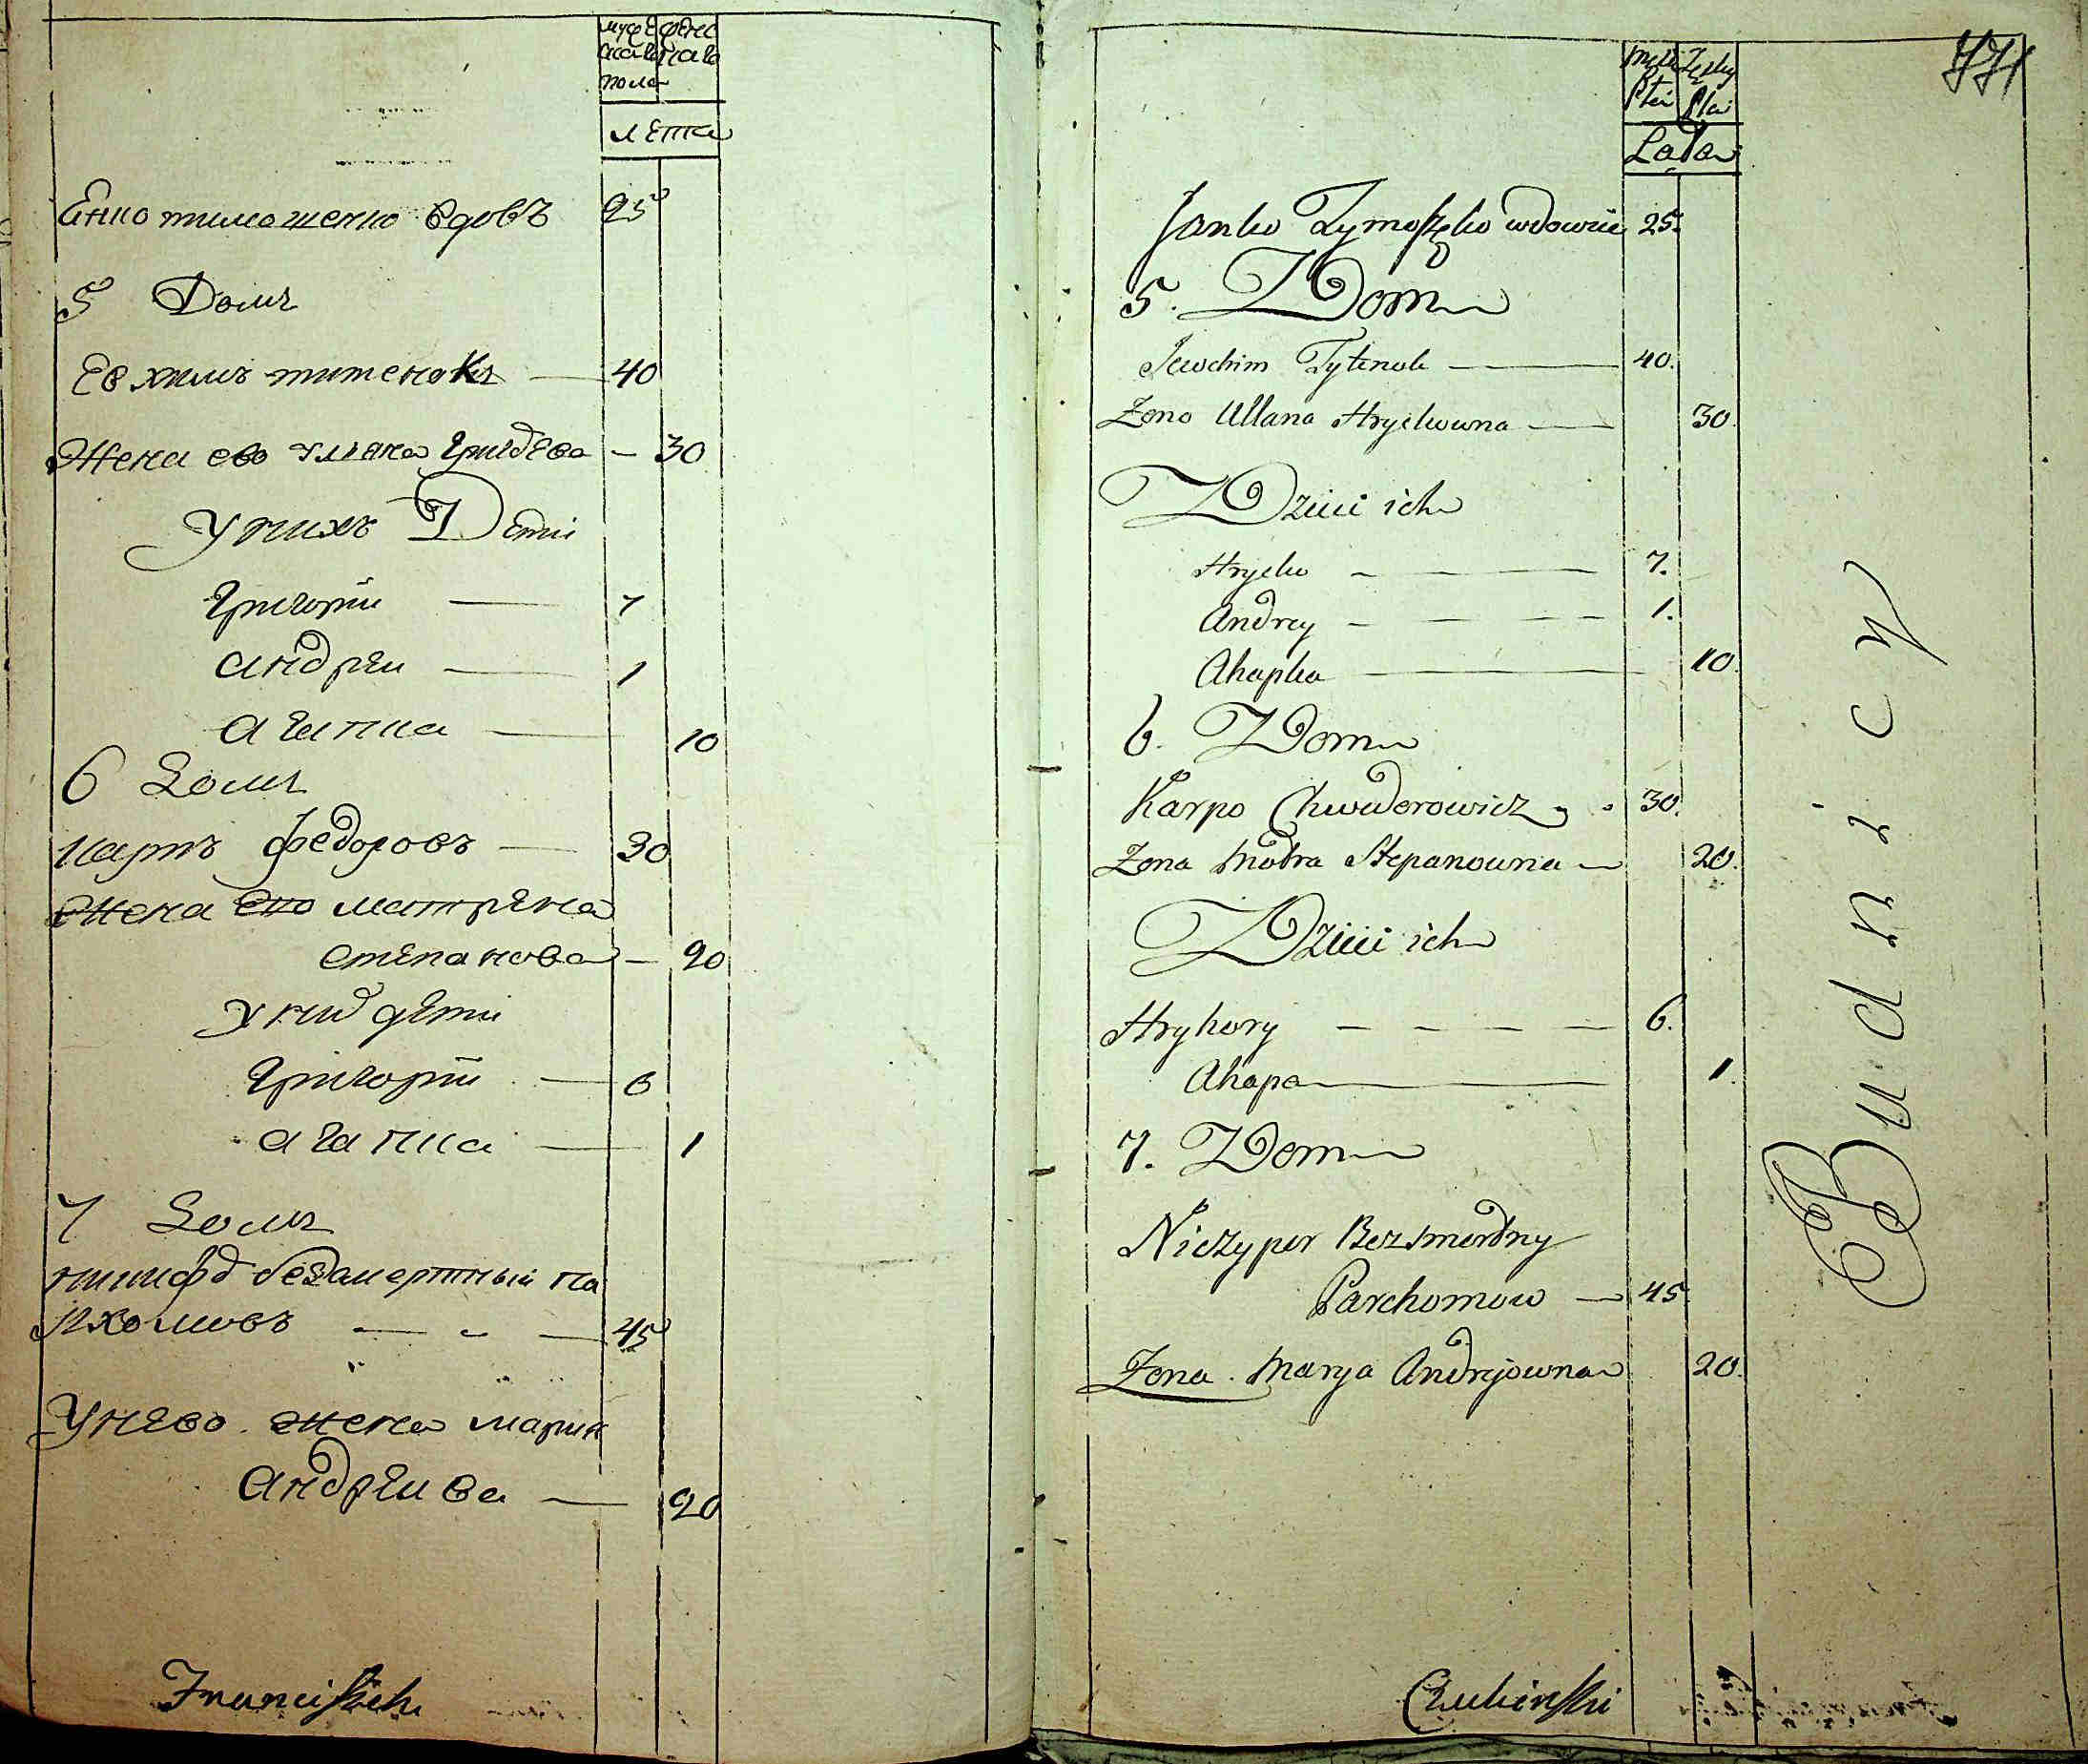 мужеска пола
женс кова
лета
Енко тимошенко вдовъ 25
5 Домъ
Евхимъ титенокъ — 40
Жена ево ульяна Грицева — 30
У нихъ Дети
Григорїи — 7
андреи — 1
агапка — 10
6 Домъ
карпъ федоровъ — 30
Жена ево матрена
степанова — 20
У них дети
Григорїи — 6
агапка — 1
7 Домъ
ничипор безсмертныи па
рхомовъ — 45
У нево жена мария
андреива — 20
Franciszek
Męsk Płci
Żeńsky Płci
Lata
Janko Tymoszko wdowiec 25.
5. Dom
Jewchim Tytenok — 40.
Zona Ullana Hryckowna — 30.
Dzieci ich
Hrycko — 7.
Andrey — 1.
Ahapka — 10.
6. Dom
Karpo Chwedorowicz 30.
Zona Motra Stepanowna — 20.
Dzieci ich
Hryhory — 6.
Ahapa — 1.
7. Dom
Niczypor Bezsmertny
Parchomow — 45.
Zona Marya Andrejowna 20.
Czubinski
Budnicy